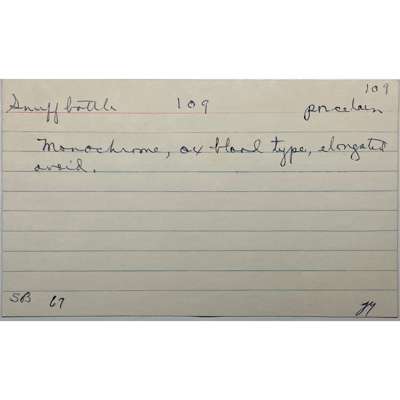 109
Snuff bottle 109 porcelain
Monochrome, ox blood type, elongated
ovoid.
SB 67